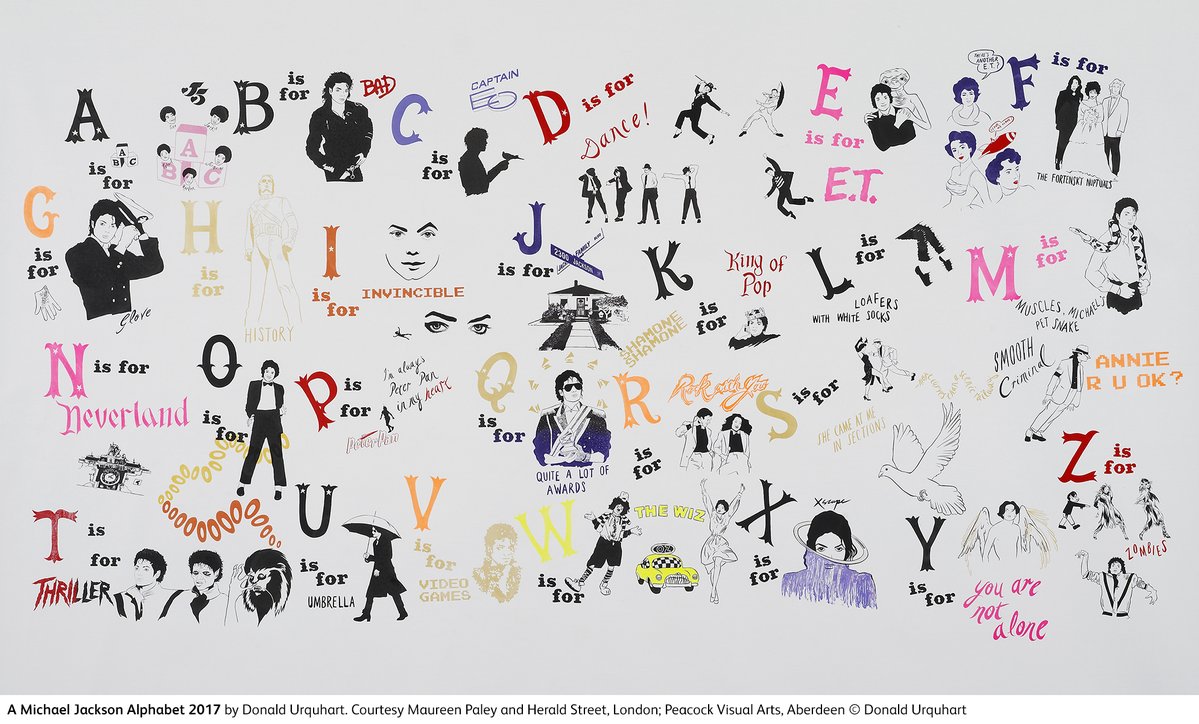 A
is
for
A
B C
J5
A
B C
B
is
for
BAD
C
is
for
CAPTAIN
EO
D
is for
Dance!
E
is for
E.T.
THERE'S
ANOTHER
E.T.?
F
is for
THE FORTENSKY NUPTUALS
G
is
for
glove
H
is
for
HISTORY
I
is
for
INVINCIBLE
J
is for
2300 JACKSON ST
FAMILY
K
is
for
King of
Pop
SHAMONE
SHAMONE
L
is
for
LOAFERS
WITH WHITE SOCKS
M
is
for
MUSCLES, MICHAEL'S
PET SNAKE
N
is for
Neverland
O
is
for
P
is
for
I'm always
Peter Pan
in my heart
Peter Pan
Q
is
for
QUITE A LOT OF
AWARDS
R
is
for
Rock with You
S
is
for
SHE CAME AT ME
IN SECTIONS
SMOOTH
Criminal
ANNIE
R U OK?
T
is
for
THRILLER
U
is
for
UMBRELLA
V
is
for
VIDEO
GAMES
W
is
for
THE WIZ
X
is
for
Xscape
Y
is
for
you are
not
alone
Z
is
for
ZOMBIES
A Michael Jackson Alphabet 2017 by Donald Urquhart. Courtesy Maureen Paley and Herald Street, London; Peacock Visual Arts, Aberdeen © Donald Urquhart